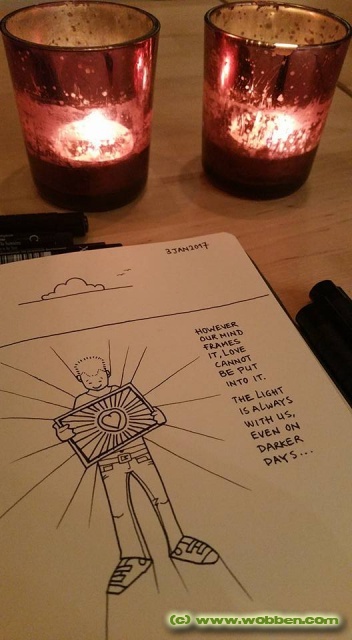 3JAN2017
HOWEVER
OUR MIND
FRAMES
IT, LOVE
CANNOT
BE PUT
INTO IT.
THE LIGHT
IS ALWAYS
WITH US,
EVEN ON
DARKER
DAYS...
(c) www.wobben.com